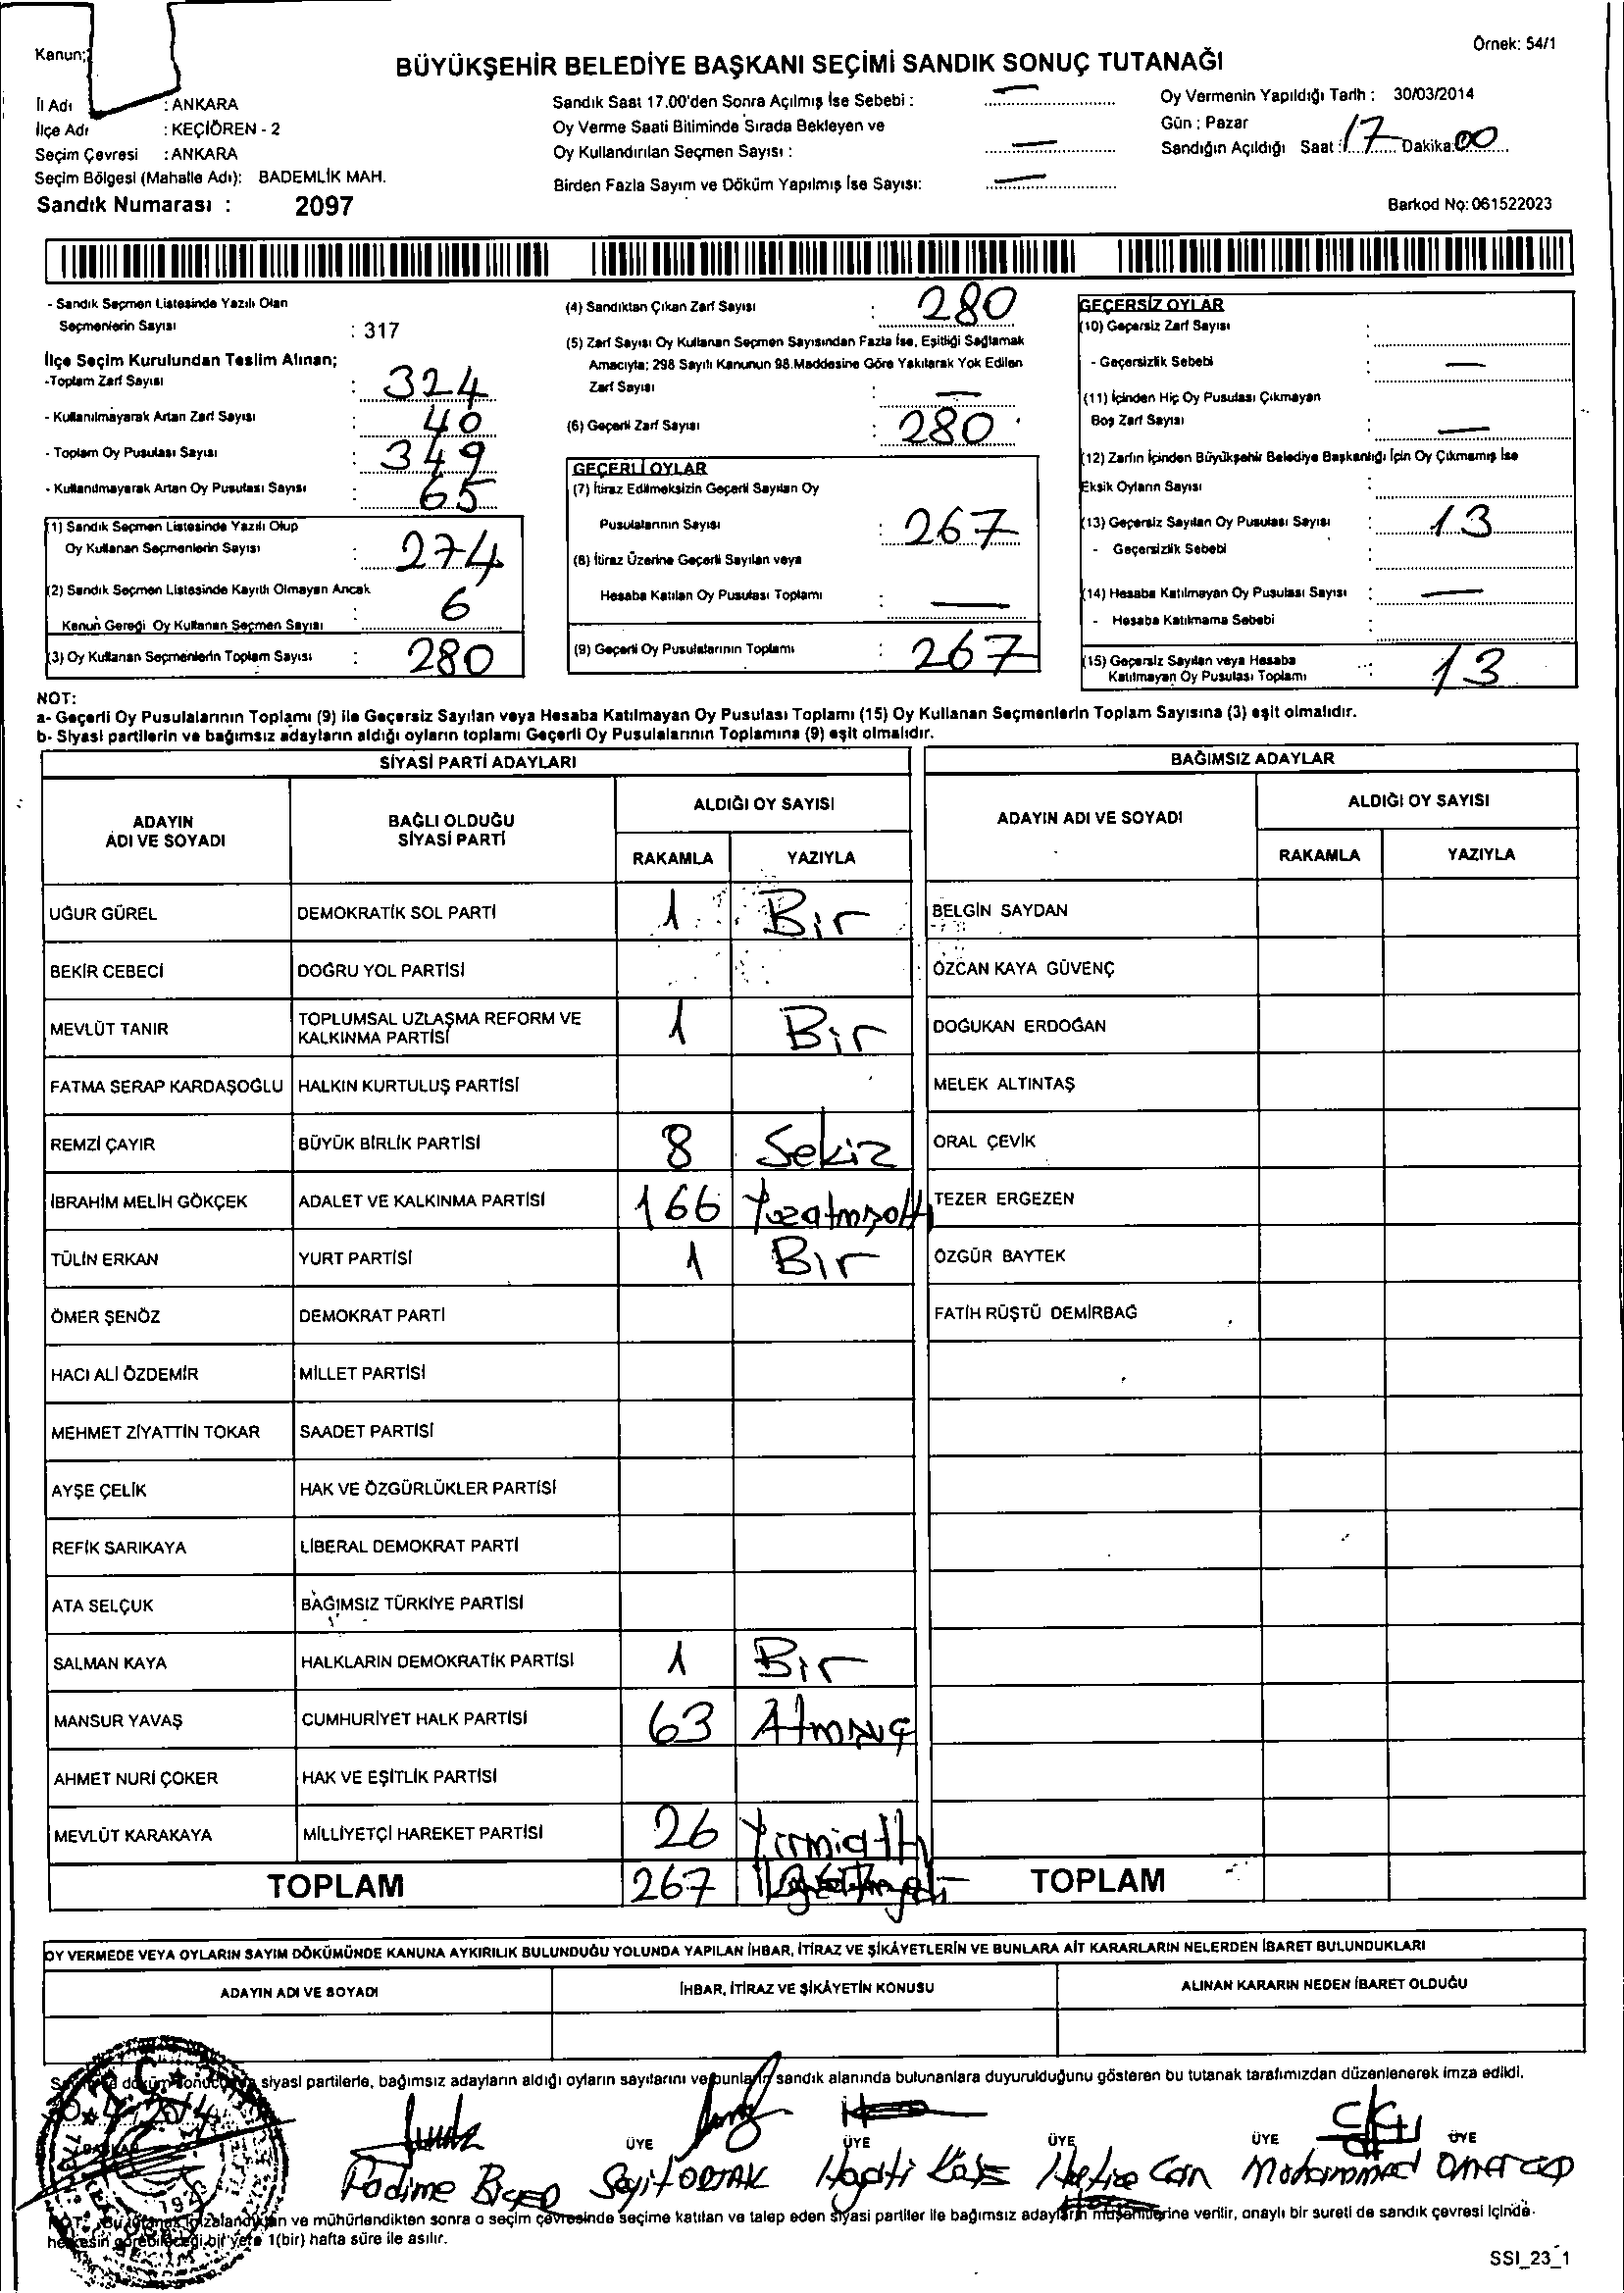 Kanun:
Örnek: 54/1
BÜYÜKŞEHİR BELEDİYE BAŞKANI SEÇİMİ SANDIK SONUÇ TUTANAĞI
İl Adı : ANKARA
İlçe Adı : KEÇİÖREN - 2
Seçim Çevresi : ANKARA
Seçim Bölgesi (Mahalle Adı): BADEMLİK MAH.
Sandık Numarası : 2097
Sandık Saat 17.00'den Sonra Açılmış İse Sebebi : —
Oy Verme Saati Bitiminde Sırada Bekleyen ve
Oy Kullandırılan Seçmen Sayısı : —
Birden Fazla Sayım ve Döküm Yapılmış İse Sayısı: —
Oy Vermenin Yapıldığı Tarih : 30/03/2014
Gün : Pazar
Sandığın Açıldığı Saat : 17 Dakika: 00
Barkod No: 061522023
- Sandık Seçmen Listesinde Yazılı Olan
Seçmenlerin Sayısı : 317
İlçe Seçim Kurulundan Teslim Alınan;
-Toplam Zarf Sayısı : 324
- Kullanılmayarak Artan Zarf Sayısı : 40
- Toplam Oy Pusulası Sayısı : 349
- Kullanılmayarak Artan Oy Pusulası Sayısı : 65
(1) Sandık Seçmen Listesinde Yazılı Olup
Oy Kullanan Seçmenlerin Sayısı : 274
(2) Sandık Seçmen Listesinde Kayıtlı Olmayan Ancak
Kanun Gereği Oy Kullanan Seçmen Sayısı : 6
(3) Oy Kullanan Seçmenlerin Toplam Sayısı : 280
(4) Sandıktan Çıkan Zarf Sayısı : 280
(5) Zarf Sayısı Oy Kullanan Seçmen Sayısından Fazla İse, Eşitliği Sağlamak
Amacıyla; 298 Sayılı Kanunun 98.Maddesine Göre Yakılarak Yok Edilen
Zarf Sayısı : —
(6) Geçerli Zarf Sayısı : 280
GEÇERLİ OYLAR
(7) İtiraz Edilmeksizin Geçerli Sayılan Oy
Pusulalarının Sayısı : 267
(8) İtiraz Üzerine Geçerli Sayılan veya
Hesaba Katılan Oy Pusulası Toplamı : —
(9) Geçerli Oy Pusulalarının Toplamı : 267
GEÇERSİZ OYLAR
(10) Geçersiz Zarf Sayısı :
- Geçersizlik Sebebi : —
(11) İçinden Hiç Oy Pusulası Çıkmayan
Boş Zarf Sayısı : —
(12) Zarfın İçinden Büyükşehir Belediye Başkanlığı İçin Oy Çıkmamış İse
Eksik Oyların Sayısı :
(13) Geçersiz Sayılan Oy Pusulası Sayısı : 13
- Geçersizlik Sebebi :
(14) Hesaba Katılmayan Oy Pusulası Sayısı : —
- Hesaba Katılmama Sebebi :
(15) Geçersiz Sayılan veya Hesaba
Katılmayan Oy Pusulası Toplamı : 13
NOT:
a- Geçerli Oy Pusulalarının Toplamı (9) ile Geçersiz Sayılan veya Hesaba Katılmayan Oy Pusulası Toplamı (15) Oy Kullanan Seçmenlerin Toplam Sayısına (3) eşit olmalıdır.
b- Siyasi partilerin ve bağımsız adayların aldığı oyların toplamı Geçerli Oy Pusulalarının Toplamına (9) eşit olmalıdır.
SİYASİ PARTİ ADAYLARI
ADAYIN ADI VE SOYADI
BAĞLI OLDUĞU SİYASİ PARTİ
ALDIĞI OY SAYISI
RAKAMLA YAZIYLA
UĞUR GÜREL DEMOKRATİK SOL PARTİ 1 Bir
BEKİR CEBECİ DOĞRU YOL PARTİSİ
MEVLÜT TANIR TOPLUMSAL UZLAŞMA REFORM VE KALKINMA PARTİSİ 1 Bir
FATMA SERAP KARDAŞOĞLU HALKIN KURTULUŞ PARTİSİ
REMZİ ÇAYIR BÜYÜK BİRLİK PARTİSİ 8 Sekiz
İBRAHİM MELİH GÖKÇEK ADALET VE KALKINMA PARTİSİ 166
TÜLİN ERKAN YURT PARTİSİ 1 Bir
ÖMER ŞENÖZ DEMOKRAT PARTİ
HACI ALİ ÖZDEMİR MİLLET PARTİSİ
MEHMET ZİYATTİN TOKAR SAADET PARTİSİ
AYŞE ÇELİK HAK VE ÖZGÜRLÜKLER PARTİSİ
REFİK SARIKAYA LİBERAL DEMOKRAT PARTİ
ATA SELÇUK BAĞIMSIZ TÜRKİYE PARTİSİ
SALMAN KAYA HALKLARIN DEMOKRATİK PARTİSİ 1 Bir
MANSUR YAVAŞ CUMHURİYET HALK PARTİSİ 63
AHMET NURİ ÇOKER HAK VE EŞİTLİK PARTİSİ
MEVLÜT KARAKAYA MİLLİYETÇİ HAREKET PARTİSİ 26 Yirmialtı
TOPLAM 267
BAĞIMSIZ ADAYLAR
ADAYIN ADI VE SOYADI
ALDIĞI OY SAYISI
RAKAMLA YAZIYLA
BELGİN SAYDAN
ÖZCAN KAYA GÜVENÇ
DOĞUKAN ERDOĞAN
MELEK ALTINTAŞ
ORAL ÇEVİK
TEZER ERGEZEN
ÖZGÜR BAYTEK
FATİH RÜŞTÜ DEMİRBAĞ
TOPLAM
OY VERMEDE VEYA OYLARIN SAYIM DÖKÜMÜNDE KANUNA AYKIRILIK BULUNDUĞU YOLUNDA YAPILAN İHBAR, İTİRAZ VE ŞİKÂYETLERİN VE BUNLARA AİT KARARLARIN NELERDEN İBARET BULUNDUKLARI
ADAYIN ADI VE SOYADI
İHBAR, İTİRAZ VE ŞİKÂYETİN KONUSU
ALINAN KARARIN NEDEN İBARET OLDUĞU
siyasi partilerle, bağımsız adayların aldığı oyların sayılarını ve bunların sandık alanında bulunanlara duyurulduğunu gösteren bu tutanak tarafımızdan düzenlenerek imza edildi.
ÜYE ÜYE ÜYE ÜYE ÜYE
Fadime Seyit ORTAK Hayati Hatice Can Mohammed Omer
ve mühürlendikten sonra o seçim çevresinde seçime katılan ve talep eden siyasi partiler ile bağımsız adayların müşahitlerine verilir, onaylı bir sureti de sandık çevresi içinde
herkesin görebileceği bir yere 1(bir) hafta süre ile asılır.
SSI_23_1